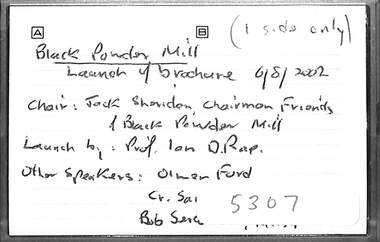 A B (1 side only)
Black Powder Mill
Launch of brochure 6/8/2002
Chair: Jack Sheridan Chairman Friends
of Black Powder Mill
Launch by: Prof. Ian D. Rae.
Other Speakers: Olmen Ford
Cr. Sai
5307
Bob Sera